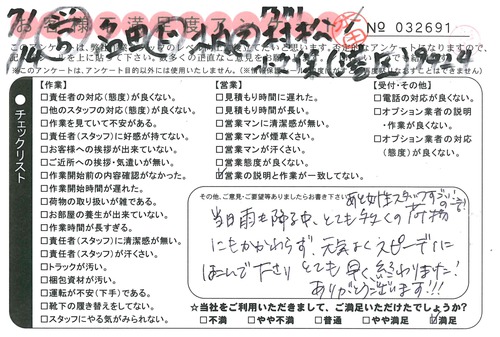 お客様満足度アンケート
№ 032691
このアンケートは、弊社
※このアンケートは、アンケート目的以外には使用いたしません。
チェックリスト
【作業】
□責任者の対応(態度)が良くない。
□他のスタッフの対応(態度)が良くない。
□作業を見ていて不安がある。
□責任者(スタッフ)に好感が持てない。
□お客様への挨拶が出来ていない。
□ご近所への挨拶・気遣いが無い。
□作業開始前の内容確認がなかった。
□作業開始時間が遅れた。
□荷物の取り扱いが雑である。
□お部屋の養生が出来ていない。
□作業時間が長すぎる。
□責任者(スタッフ)に清潔感が無い。
□責任者(スタッフ)が汗くさい。
□トラックが汚い。
□梱包資材が汚い。
□運転が不安(下手)である。
□靴下の履き替えをしてない。
□スタッフにやる気がみられない。
【営業】
□見積もり時間に遅れた。
□見積もり時間が長い。
□営業マンに清潔感が無い。
□営業マンが煙草くさい。
□営業マンが汗くさい。
□営業態度が良くない。
□営業の説明と作業が一致してない。
【受付・その他】
□電話の対応が良くない。
□オプション業者の説明
・作業が良くない。
□オプション業者の対応
(態度)が良くない。
その他、ご意見・ご要望等ありましたらお書き下さい
当日雨も降る中、とても多くの荷物
にもかかわらず、元気よくスピーディに
はこんで下さり とても早く終わりました!
ありがとうございます!!!
☆当社をご利用いただきまして、ご満足いただけたでしょうか?
□不満 □やや不満 □普通 □やや満足 ☑満足